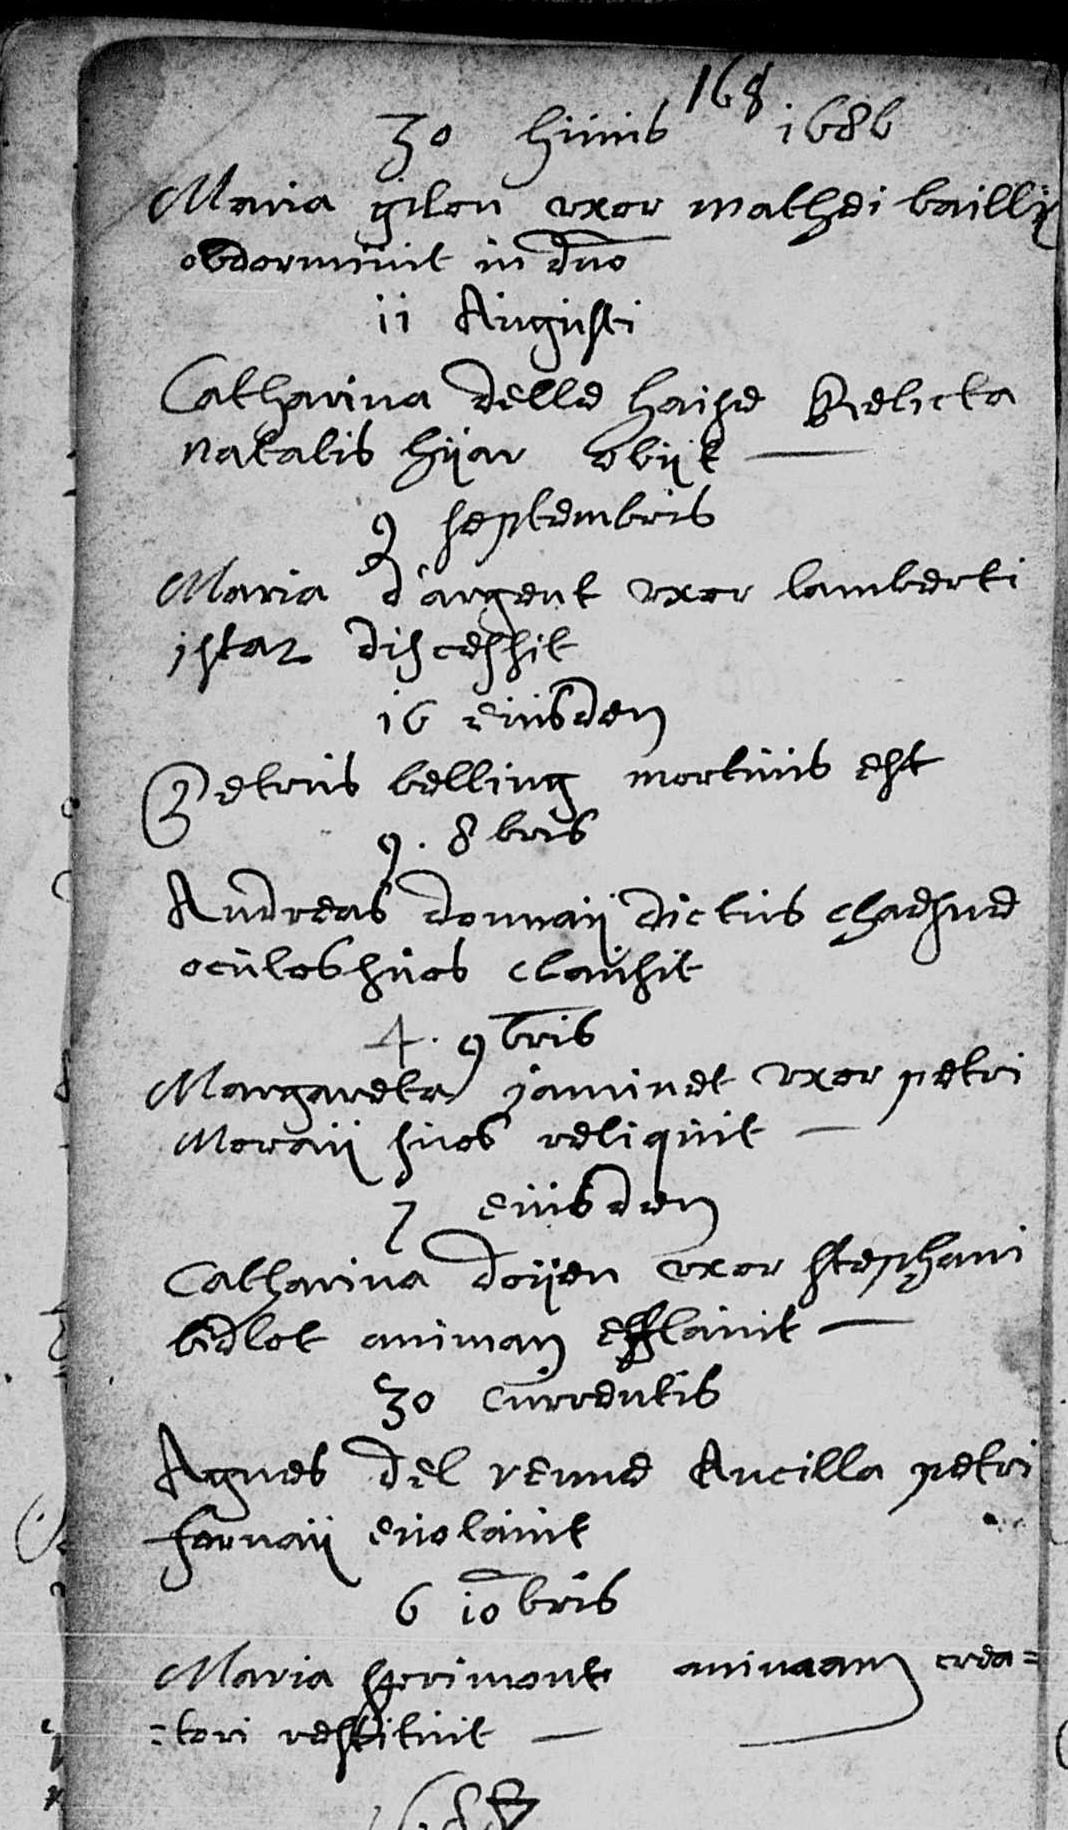 168
30 huius 1686
Maria gilon uxor mathei bailly
obdormivit in dno
11 Augusti
Catharina delle haise Relicta
Natalis hijar obijt
9 septembris
Maria d'argent uxor lamberti
istaz discessit
16 eiusdem
Petrus belling mortuus est
9. 8bris
Andreas donnaij dictus chaesne
oculos suos clausit
4. 9bris
Margareta jaminet uxor petri
Moraij suos reliquit
7 eiusdem
Catharina doijen uxor stephani
bidlot animam efflavit
30 currentis
Agnes del renne Ancilla petri
fornaij evolavit
6 10bris
Maria grimont animaam crea=
=tori restituit